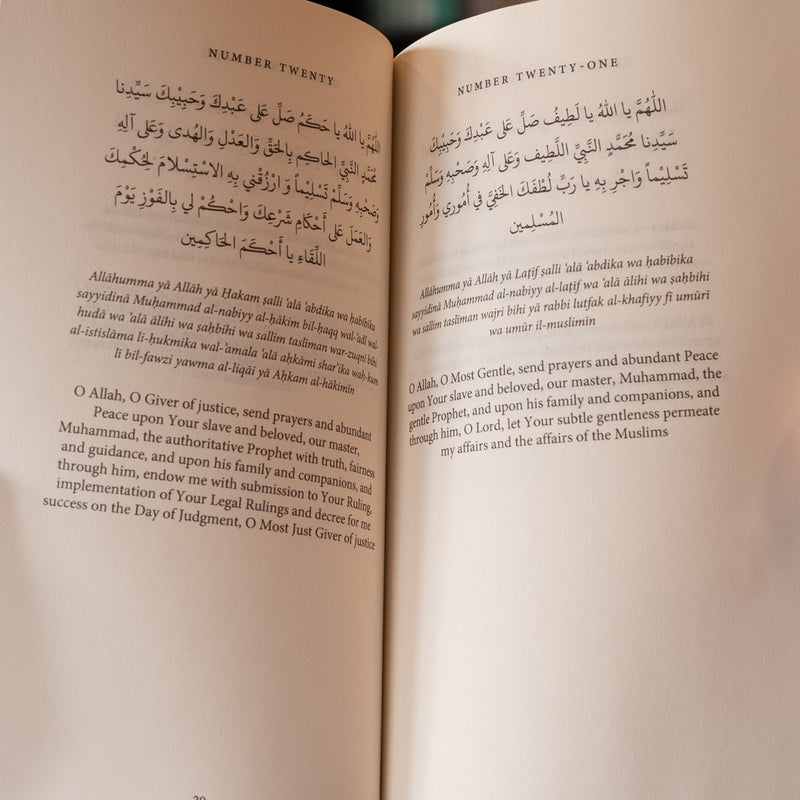 NUMBER TWENTY
اللّٰهُمَّ يا اللّٰهُ يا حَكَمُ صَلِّ عَلى عَبْدِكَ وَحَبِيْبِكَ سَيِّدِنا
مُحَمَّدٍ النَّبِيِّ الحاكِمِ بِالحَقِّ وَالعَدْلِ وَالهُدى وَعَلى آلِهِ
وَصَحْبِهِ وَسَلِّمْ تَسْلِيْماً وَارْزُقْني بِهِ الاسْتِسْلامَ لِحُكْمِكَ
وَالعَمَلَ عَلى أَحْكامِ شَرْعِكَ وَاحْكُمْ لي بِالفَوْزِ يَوْمَ
اللِّقَاءِ يا أَحْكَمَ الحَاكِمِين
Allāhumma yā Allāh yā Ḥakam ṣalli ʿalā ʿabdika wa ḥabībika
sayyidinā Muḥammad al-nabiyy al-ḥākim bil-ḥaqq wal-ʿadl wal-
hudā wa ʿalā ālihi wa ṣaḥbihi wa sallim taslīman war-zuqni bihi
al-istislāma li-ḥukmika wal-ʿamala ʿalā aḥkāmi sharʿika waḥ-kum
lī bil-fawzi yawma al-liqāi yā Aḥkam al-ḥākimīn
O Allah, O Giver of justice, send prayers and abundant
Peace upon Your slave and beloved, our master,
Muhammad, the authoritative Prophet with truth, fairness
and guidance, and upon his family and companions, and
through him, endow me with submission to Your Ruling,
implementation of Your Legal Rulings and decree for me
success on the Day of Judgment, O Most Just Giver of justice
NUMBER TWENTY-ONE
اللّٰهُمَّ يا اللّٰهُ يا لَطِيفُ صَلِّ عَلى عَبْدِكَ وَحَبِيْبِكَ
سَيِّدِنا مُحَمَّدٍ النَّبِيِّ اللَّطِيف وَعَلى آلِهِ وَصَحْبِهِ وَسَلِّمْ
تَسْلِيْماً وَاجْرِ بِهِ يا رَبِّ لُطْفَكَ الخَفِيَّ في أُمُوري وَأُمُورِ
المُسْلِمين
Allāhumma yā Allāh yā Laṭīf ṣalli ʿalā ʿabdika wa ḥabībika
sayyidinā Muḥammad al-nabiyy al-laṭīf wa ʿalā ālihi wa ṣaḥbihi
wa sallim taslīman wajri bihi yā rabbi lutfak al-khafiyy fī umūrī
wa umūr il-muslimīn
O Allah, O Most Gentle, send prayers and abundant Peace
upon Your slave and beloved, our master, Muhammad, the
gentle Prophet, and upon his family and companions, and
through him, O Lord, let Your subtle gentleness permeate
my affairs and the affairs of the Muslims